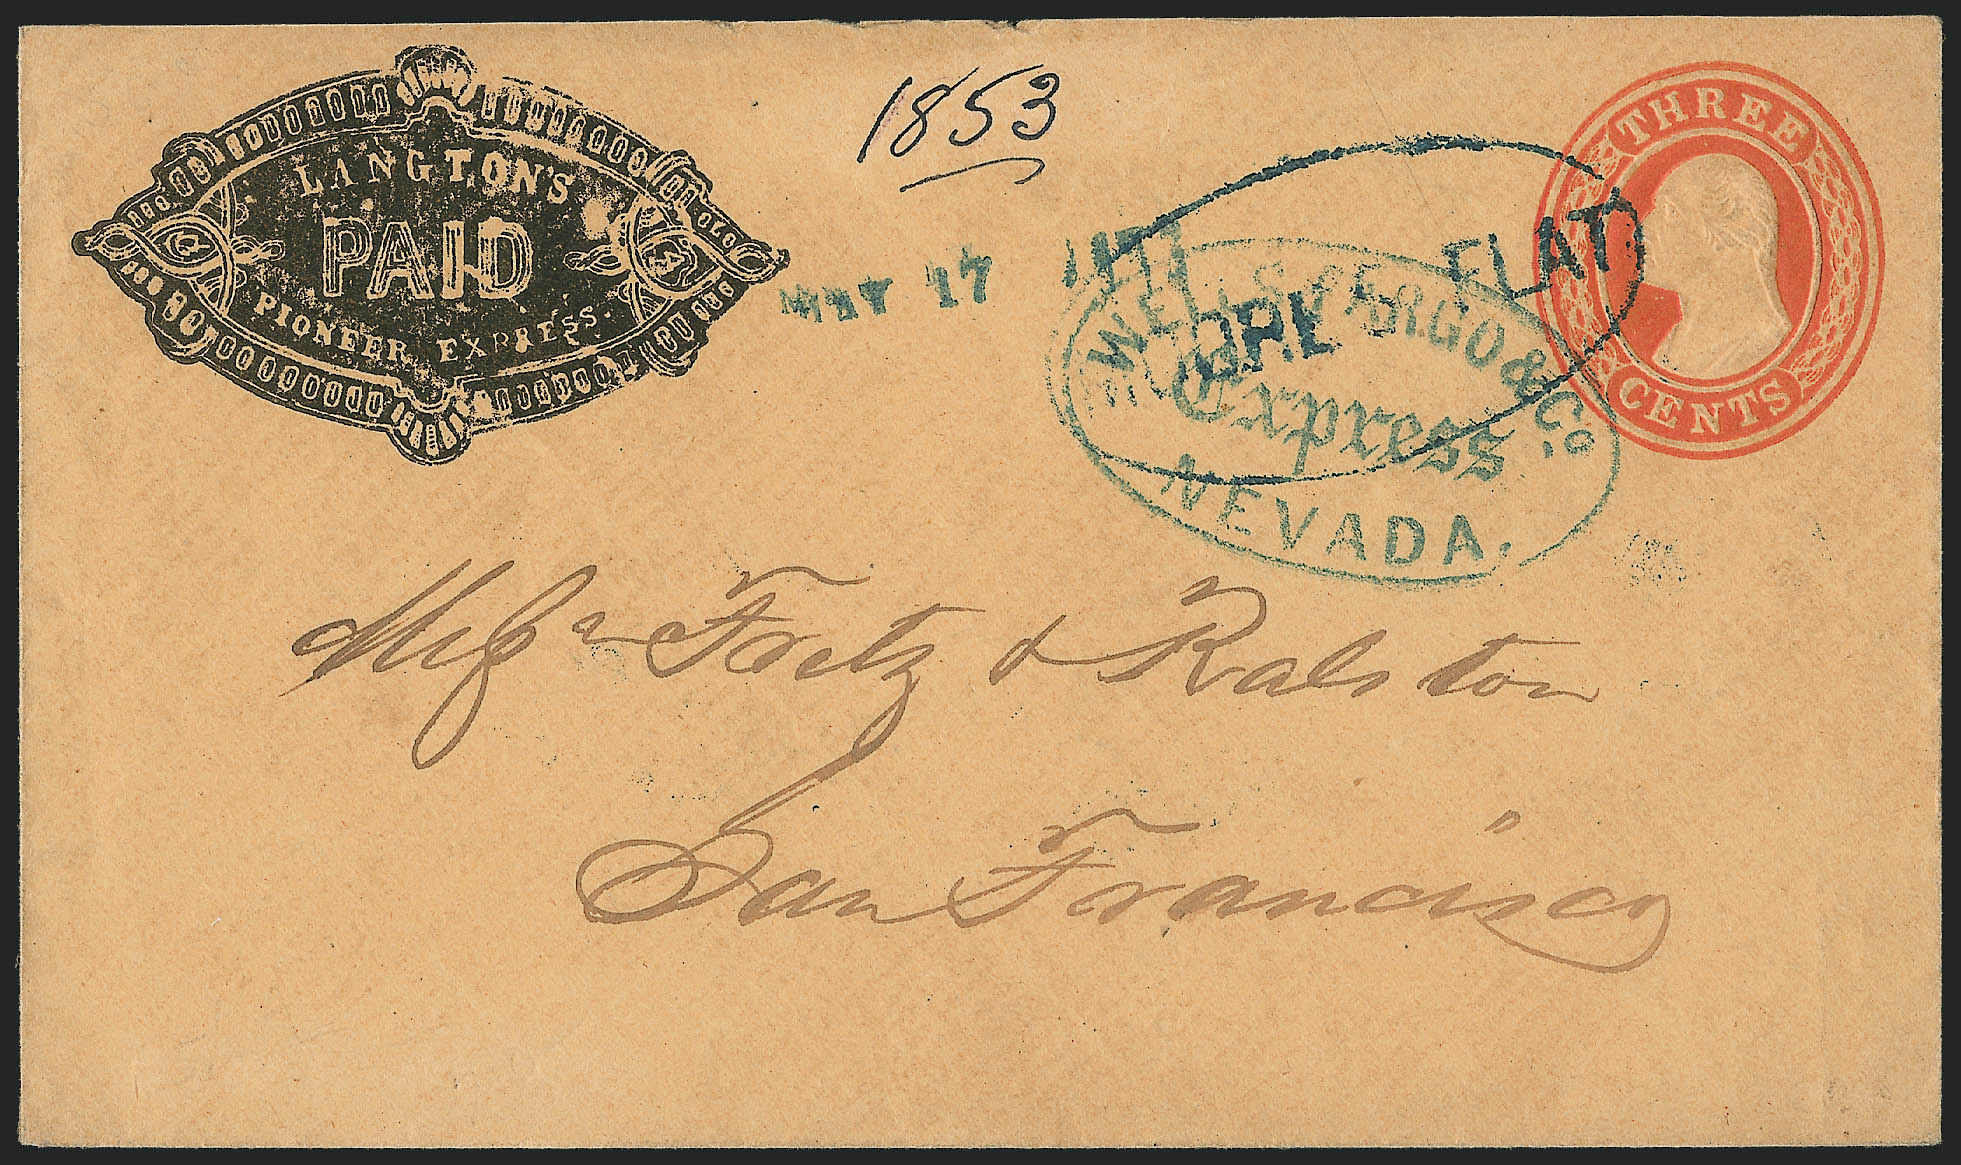 LANGTON'S
PAID
PIONEER EXPRESS.
1853
MAY 17
FLAT
WELLS, FARGO & Co.
Express
NEVADA.
THREE
CENTS
Mess Fretz & Ralston
San Francisco